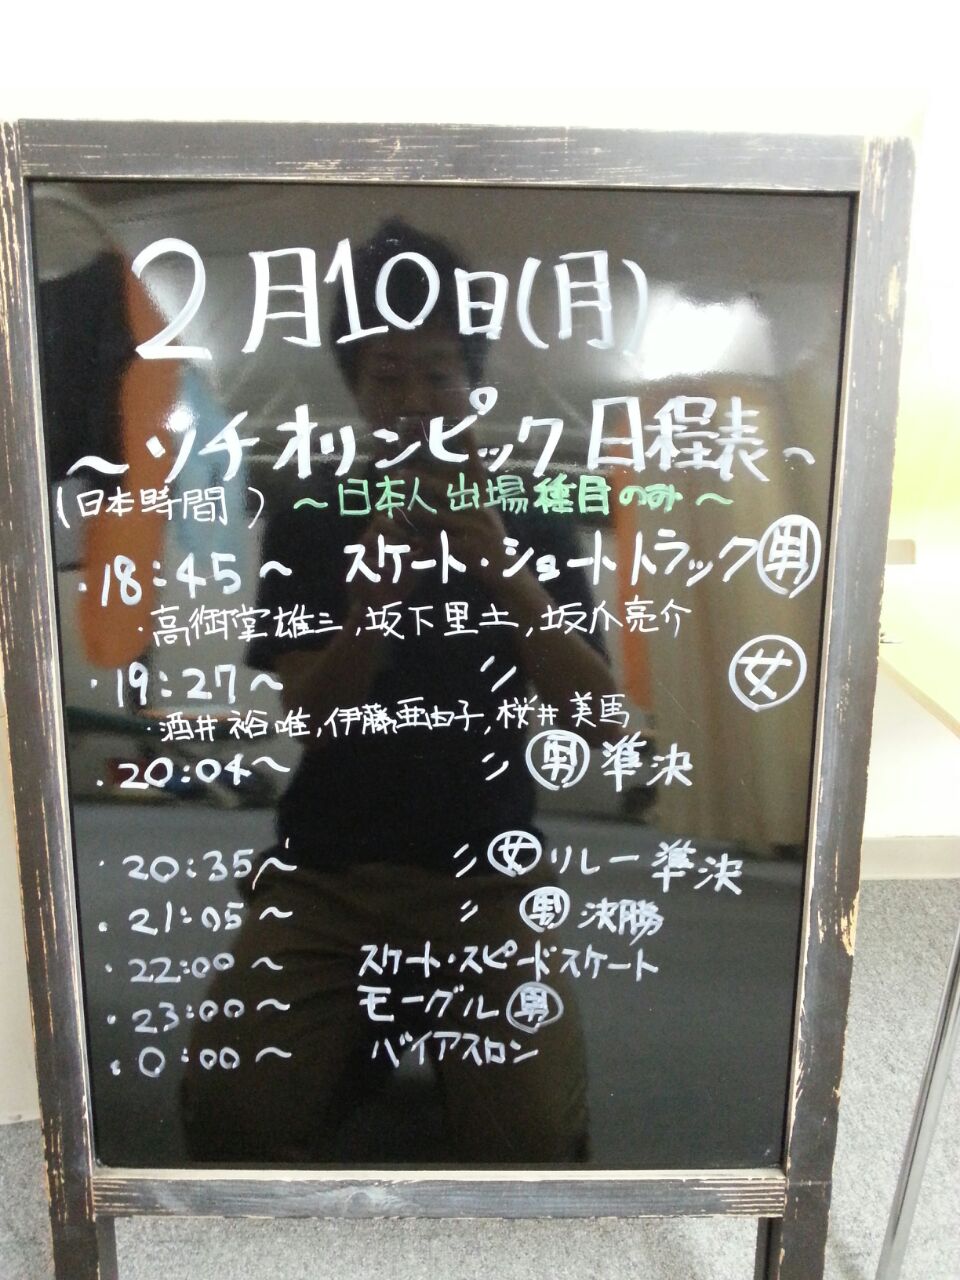 2月10日(月)
～ソチオリンピック日程表～
(日本時間) ～日本人出場種目のみ～
・18:45～ スケート・ショートトラック男
・高御堂雄三,坂下里士,坂爪亮介
・19:27～ 〃 女
・酒井裕唯,伊藤亜由子,桜井美馬
・20:04～ 〃 男 準決
・20:35～ 〃 女 リレー準決
・21:05～ 〃 男 決勝
・22:00～ スケート・スピードスケート
・23:00～ モーグル 男
・0:00～ バイアスロン